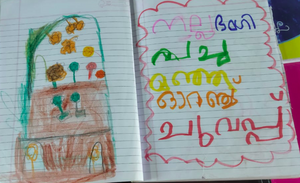 നല്ല ഭംഗി
പച്ച
മഞ്ഞ
ഓറഞ്ച്
ചുവപ്പ്